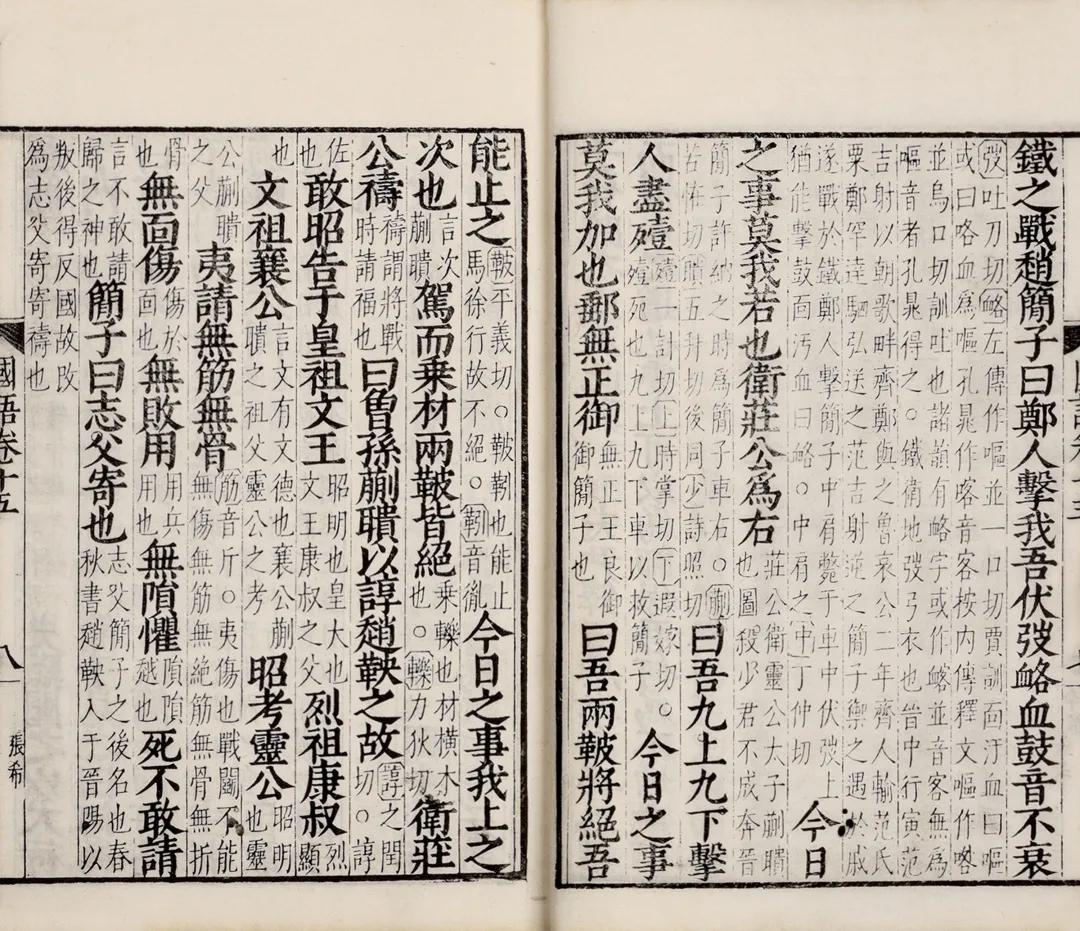 鐵之戰趙簡子曰鄭人擊我吾伏弢衉血鼓音不衰
弢吐刀切衉左傳作嘔並一口切賈訓面汙血曰嘔
或曰咯血爲嘔孔晁作喀音客按内傳釋文嘔作喀
並烏口切訓吐也諸韻有衉字或作㗉並音客無爲
嘔音者孔晁得之。鐵衛地弢弓衣也晉中行寅范
吉射以朝歌畔齊鄭與之魯哀公二年齊人輸范氏
粟鄭罕達駟弘送之范吉射逆之簡子禦之遇於戚
遂戰於鐵鄭人擊簡子中肩斃于車中伏弢上
猶能擊鼓面汚血曰衉。中肩之中丁仲切
今日
之事莫我若也衛莊公爲右
莊公衛靈公太子蒯聵
也圖殺少君不成奔晉
簡子許納之時爲簡子車右。蒯
若怪切聵五拜切後同少詩照切
曰吾九上九下擊
人盡殪
殪一計切上時掌切下遐嫁切。
殪死也九上九下車以救簡子
今日之事
莫我加也郵無正御
無正王良御
御簡子也
曰吾兩鞁將絕吾
能止之
鞁平義切。鞁靷也能止
馬徐行故不絕。靷音胤
今日之事我上之
次也
言次
蒯聵
駕而乘材兩鞁皆絕
乘轢也材橫木
也。轢力狄切
衛莊
公禱
禱謂將戰
時請福也
曰曾孫蒯聵以諄趙鞅之故
諄之閏
切。諄
佐
也
敢昭告于皇祖文王
昭明也皇大也
文王康叔之父
烈祖康叔
烈
顯
也
文祖襄公
言文有文德也襄公蒯
聵之祖父靈公之考
昭考靈公
昭明
也靈
公蒯聵
之父
夷請無筋無骨
筋音斤。夷傷也戰鬬不能
無傷無筋無絕筋無骨無折
骨
也
無面傷
傷於
面也
無敗用
用兵
用也
無隕懼
隕隕
越也
死不敢請
言不敢請
歸之神也
簡子曰志父寄也
志父簡子之後名也春
秋書趙鞅入于晉陽以
叛後得反國故改
爲志父寄寄禱也
國語卷十五
八
張希